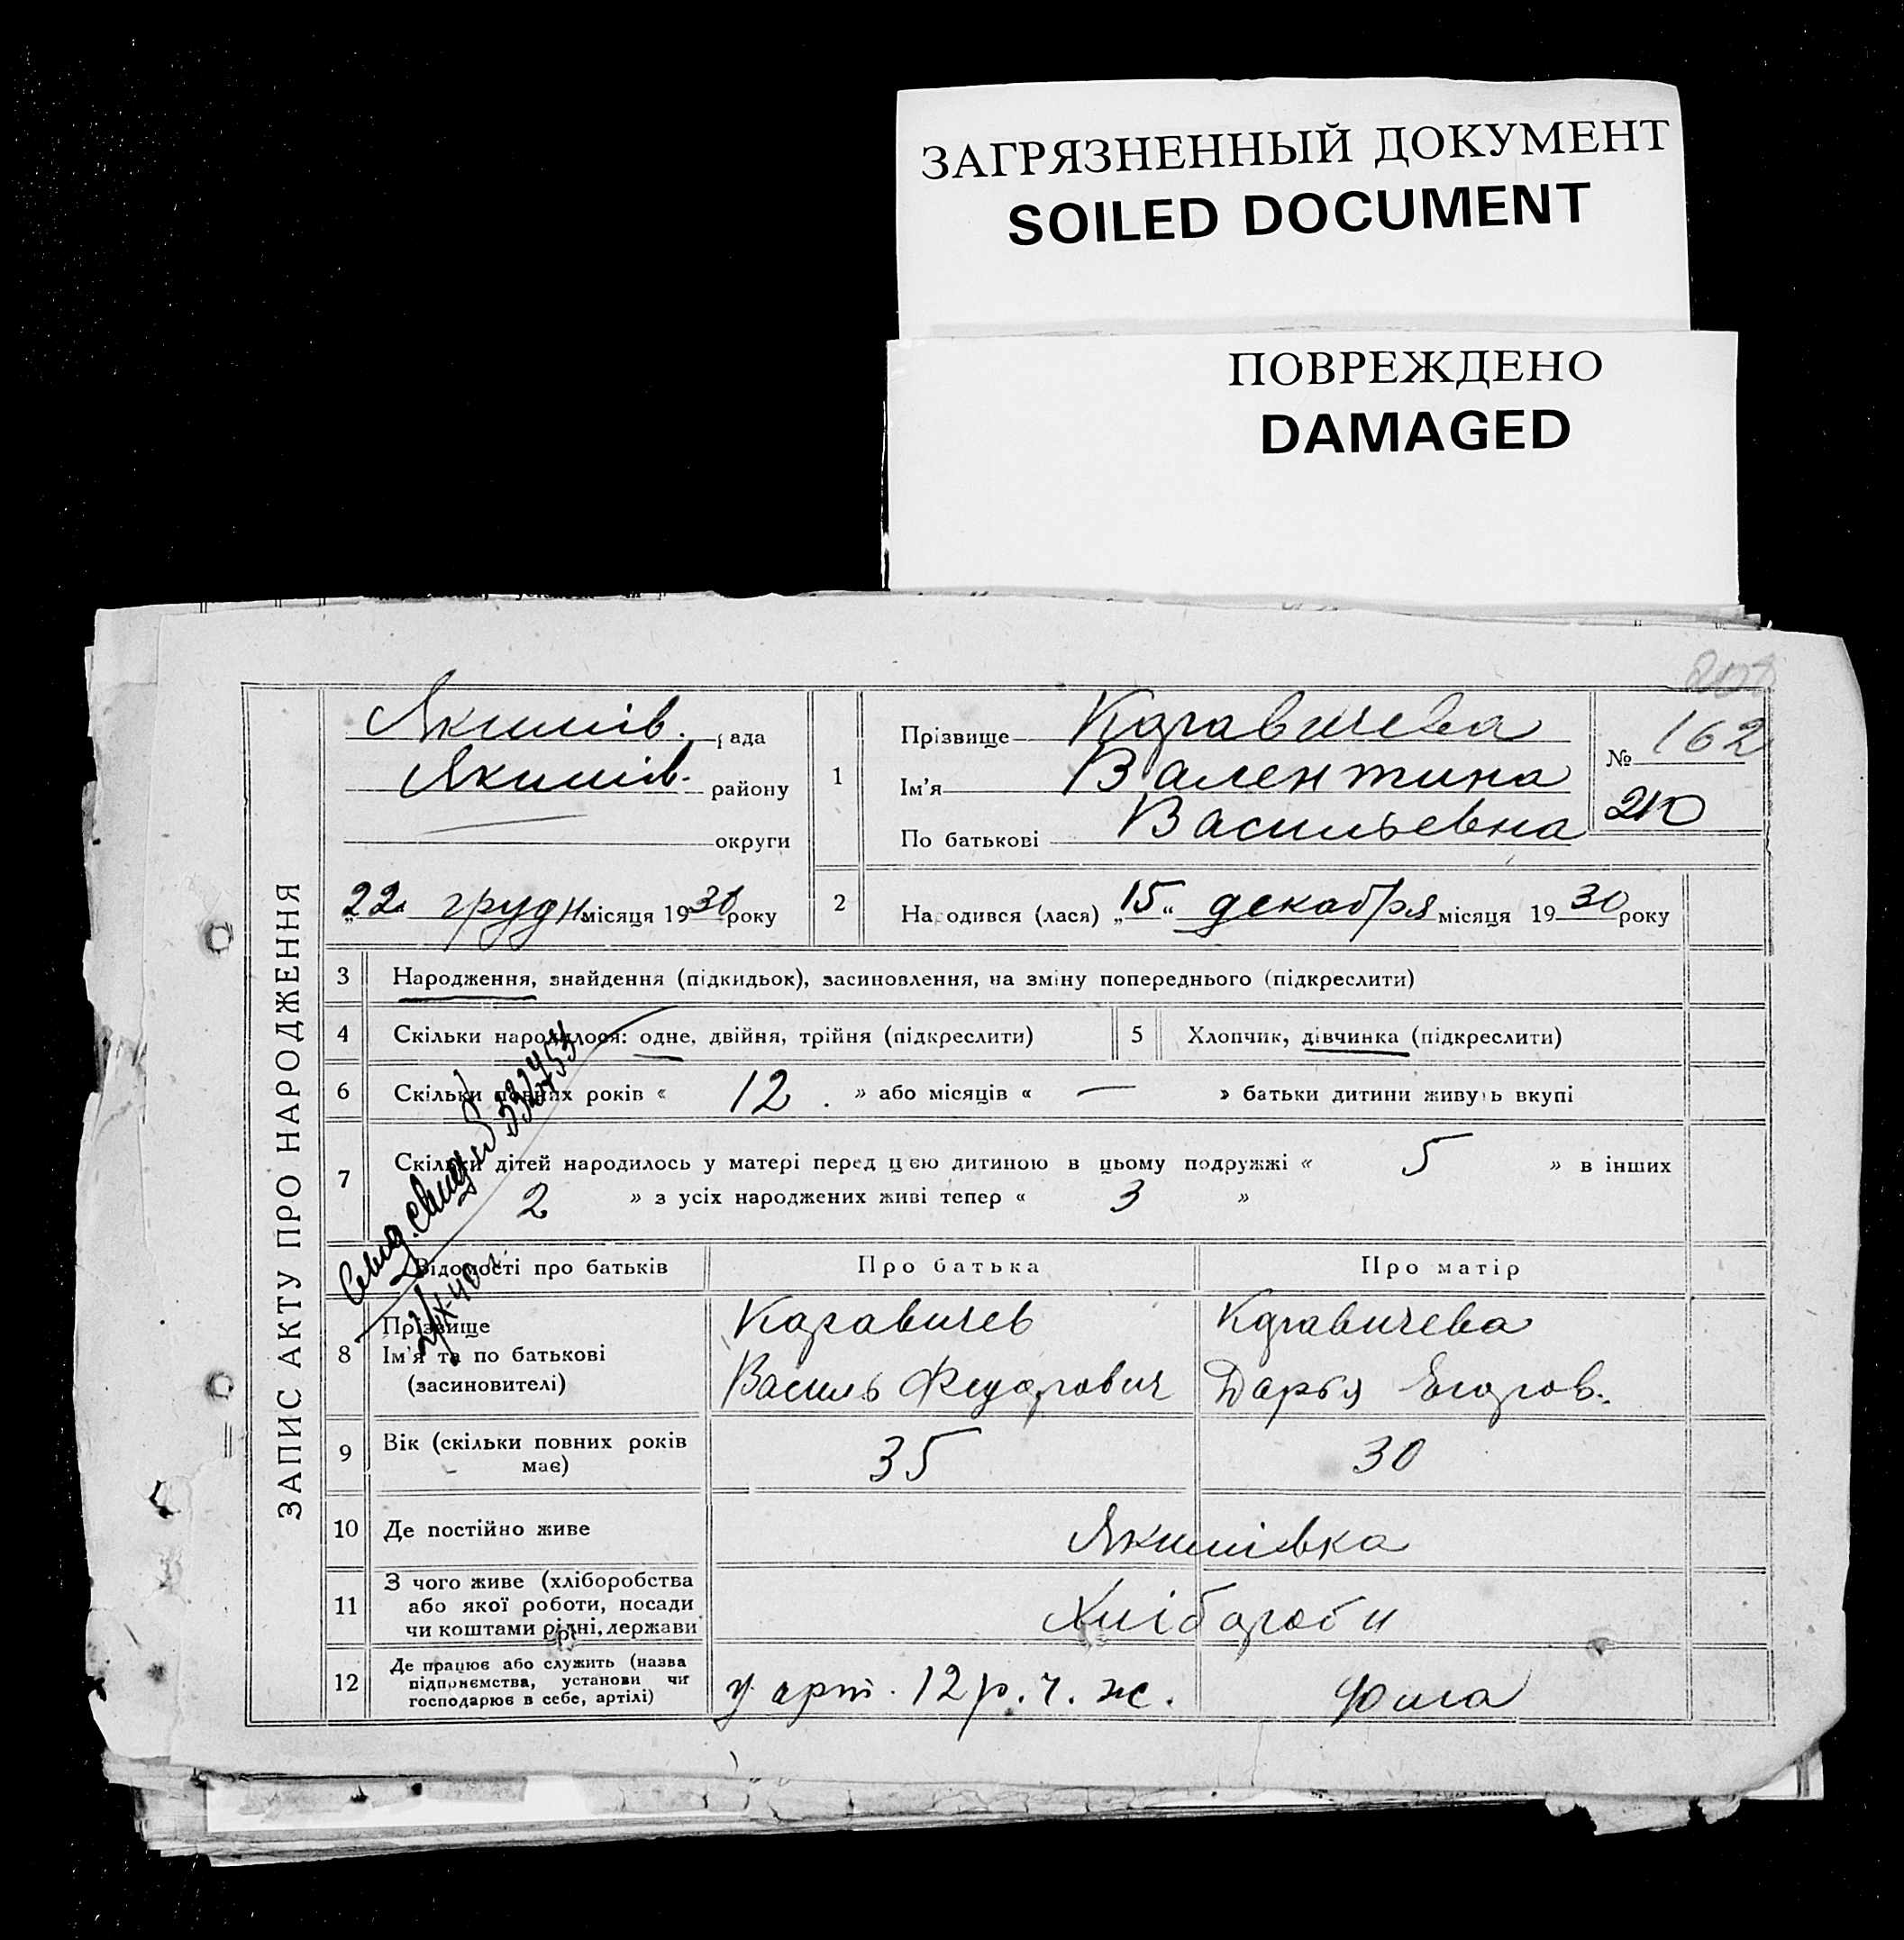 ЗАГРЯЗНЕННЫЙ ДОКУМЕНТ
SOILED DOCUMENT
ПОВРЕЖДЕНО
DAMAGED
ЗАПИС АКТУ ПРО НАРОДЖЕННЯ
Якимів. рада
Якимів. району
округи
„22" грудн місяця 1930 року
1
Прізвище Каравичева
Ім'я Валентина
По батькові Васильевна
№ 162
210
2
Народився (лася) „15“ декабря місяця 1930 року
3 Народження, знайдення (підкидьок), засиновлення, на зміну попереднього (підкреслити)
4 Скільки народилося: одне, двійня, трійня (підкреслити) 5 Хлопчик, дівчинка (підкреслити)
6 Скільки повних років « 12 . » або місяців « — » батьки дитини живуть вкупі
7 Скільки дітей народилось у матері перед цією дитиною в цьому подружжі « 5 » в інших
2 » з усіх народжених живі тепер « 3 »
532453
Відомості про батьків Про батька Про матір
8 Прізвище
Ім'я та по батькові
(засиновителі)
Каравичев
Василь Федорович
Каравичева
Дарья Егоров.
9 Вік (скільки повних років
має)
35 30
10 Де постійно живе Якимівка
11 З чого живе (хліборобства
або якої роботи, посади
чи коштами рідні, держави
Хлібороби
12 Де працює або служить (назва
підприємства, установи чи
господарює в себе, артілі)
у арт. 12 р. ч. ж.